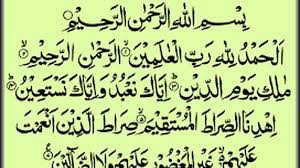 بِسْمِ اللهِ الرَّحْمٰنِ الرَّحِيْمِ
اَلْحَمْدُ لِلّٰهِ رَبِّ الْعٰلَمِيْنَ ۙ الرَّحْمٰنِ الرَّحِيْمِ ۙ
مٰلِكِ يَوْمِ الدِّيْنِ ؕ اِيَّاكَ نَعْبُدُ وَاِيَّاكَ نَسْتَعِيْنُ ؕ
اِهْدِنَا الصِّرَاطَ الْمُسْتَقِيْمَ ۙ صِرَاطَ الَّذِيْنَ اَنْعَمْتَ
عَلَيْهِمْ ۙ غَيْرِ الْمَغْضُوْبِ عَلَيْهِمْ وَلَا الضَّآلِّيْنَ